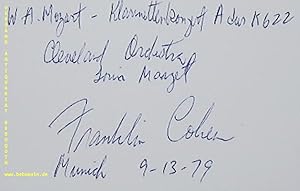 W A. Mozart - Klarinettenkonzert A dur K622
Cleveland Orchestra
Lorin Maazel
Franklin Cohen
Munich 9-13-79
www.bebuquin.de